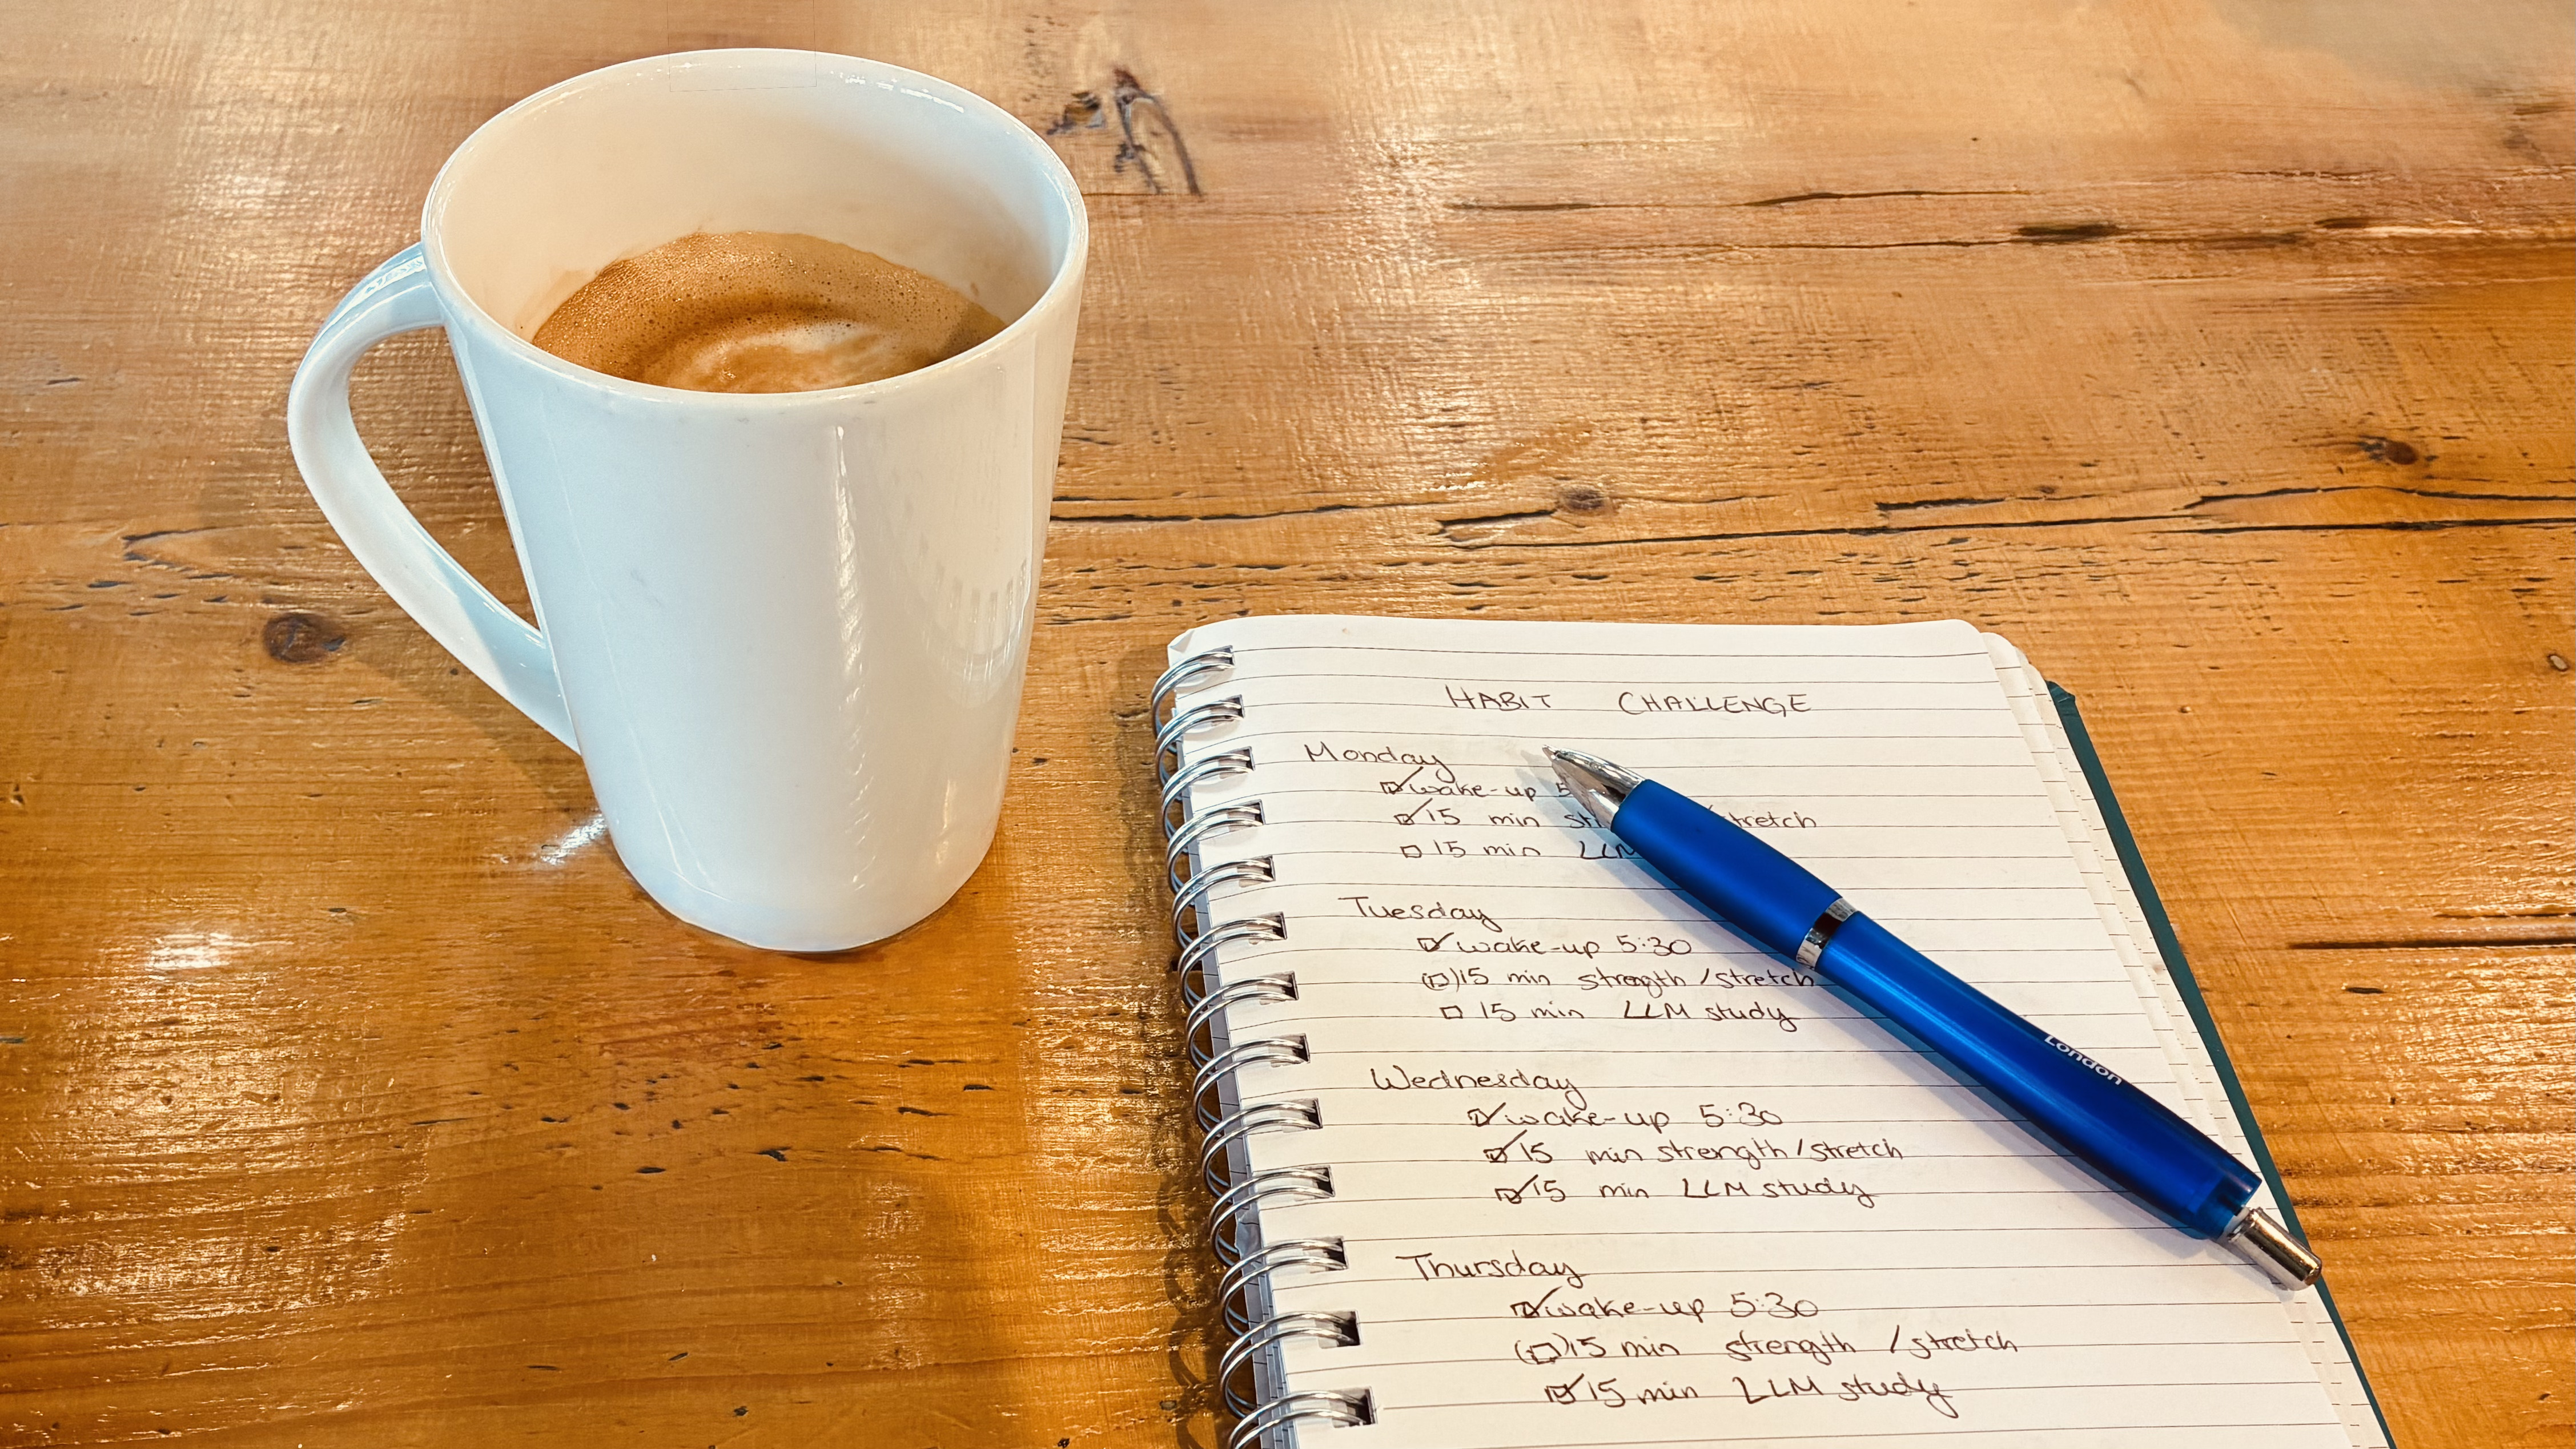 HABIT CHALLENGE
Monday
☑ wake-up 5
☑ 15 min tretch
☐ 15 min LLM
Tuesday
☑ wake-up 5:30
(☐) 15 min strength / stretch
☐ 15 min LLM study
Wednesday
☑ wake-up 5:30
☑ 15 min strength / stretch
☑ 15 min LLM study
Thursday
☑ wake-up 5:30
(☐) 15 min strength / stretch
☑ 15 min LLM study
London